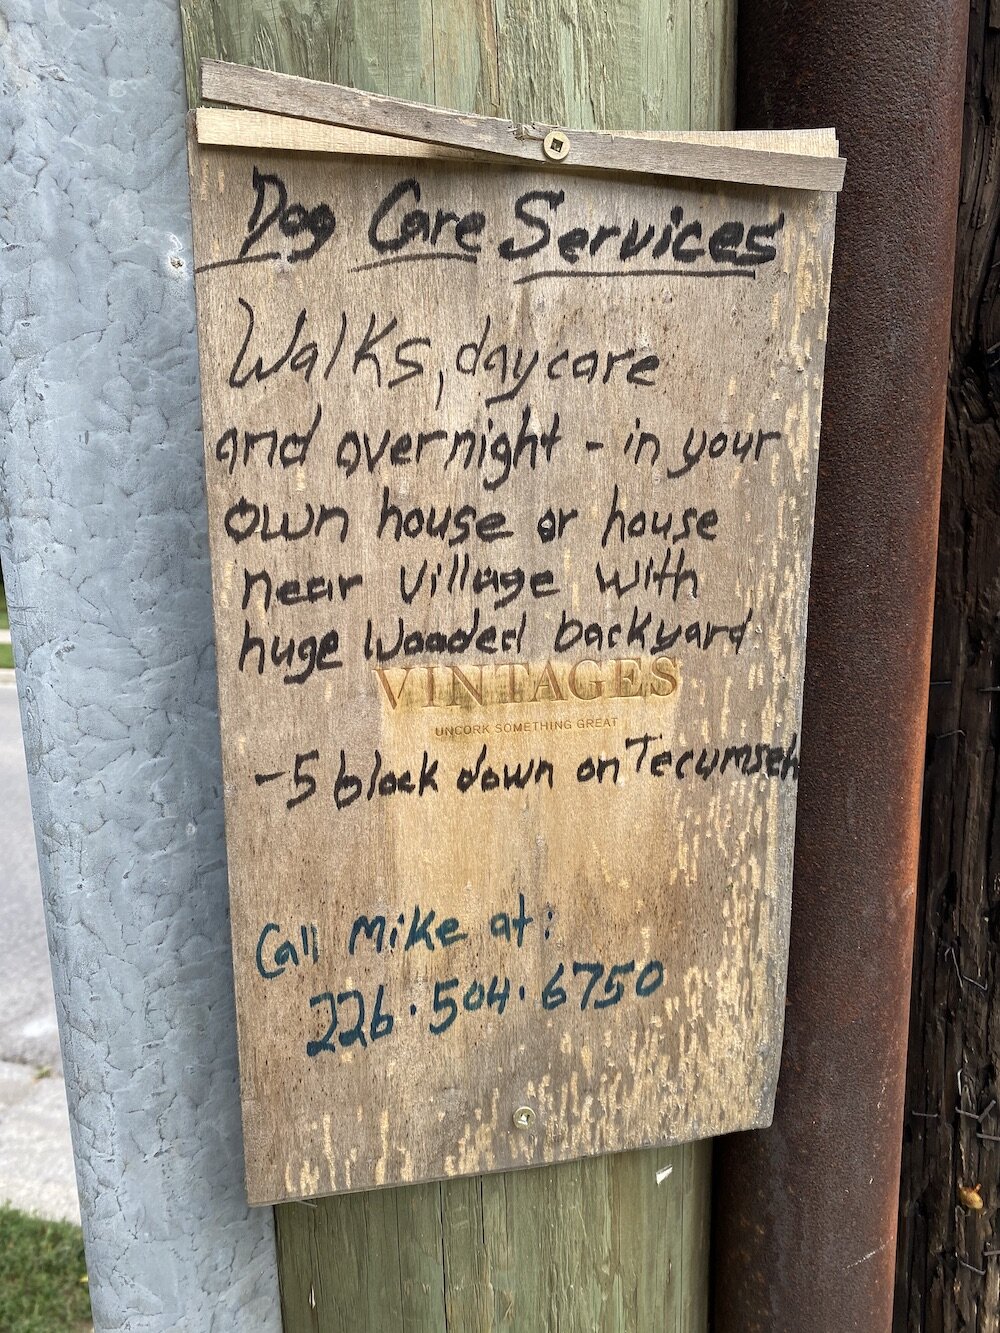 Dog Care Services
Walks, daycare
and overnight - in your
own house or house
near Village with
huge wooded backyard
VINTAGES
UNCORK SOMETHING GREAT
-5 block down on Tecumseh
Call Mike at:
226·504·6750